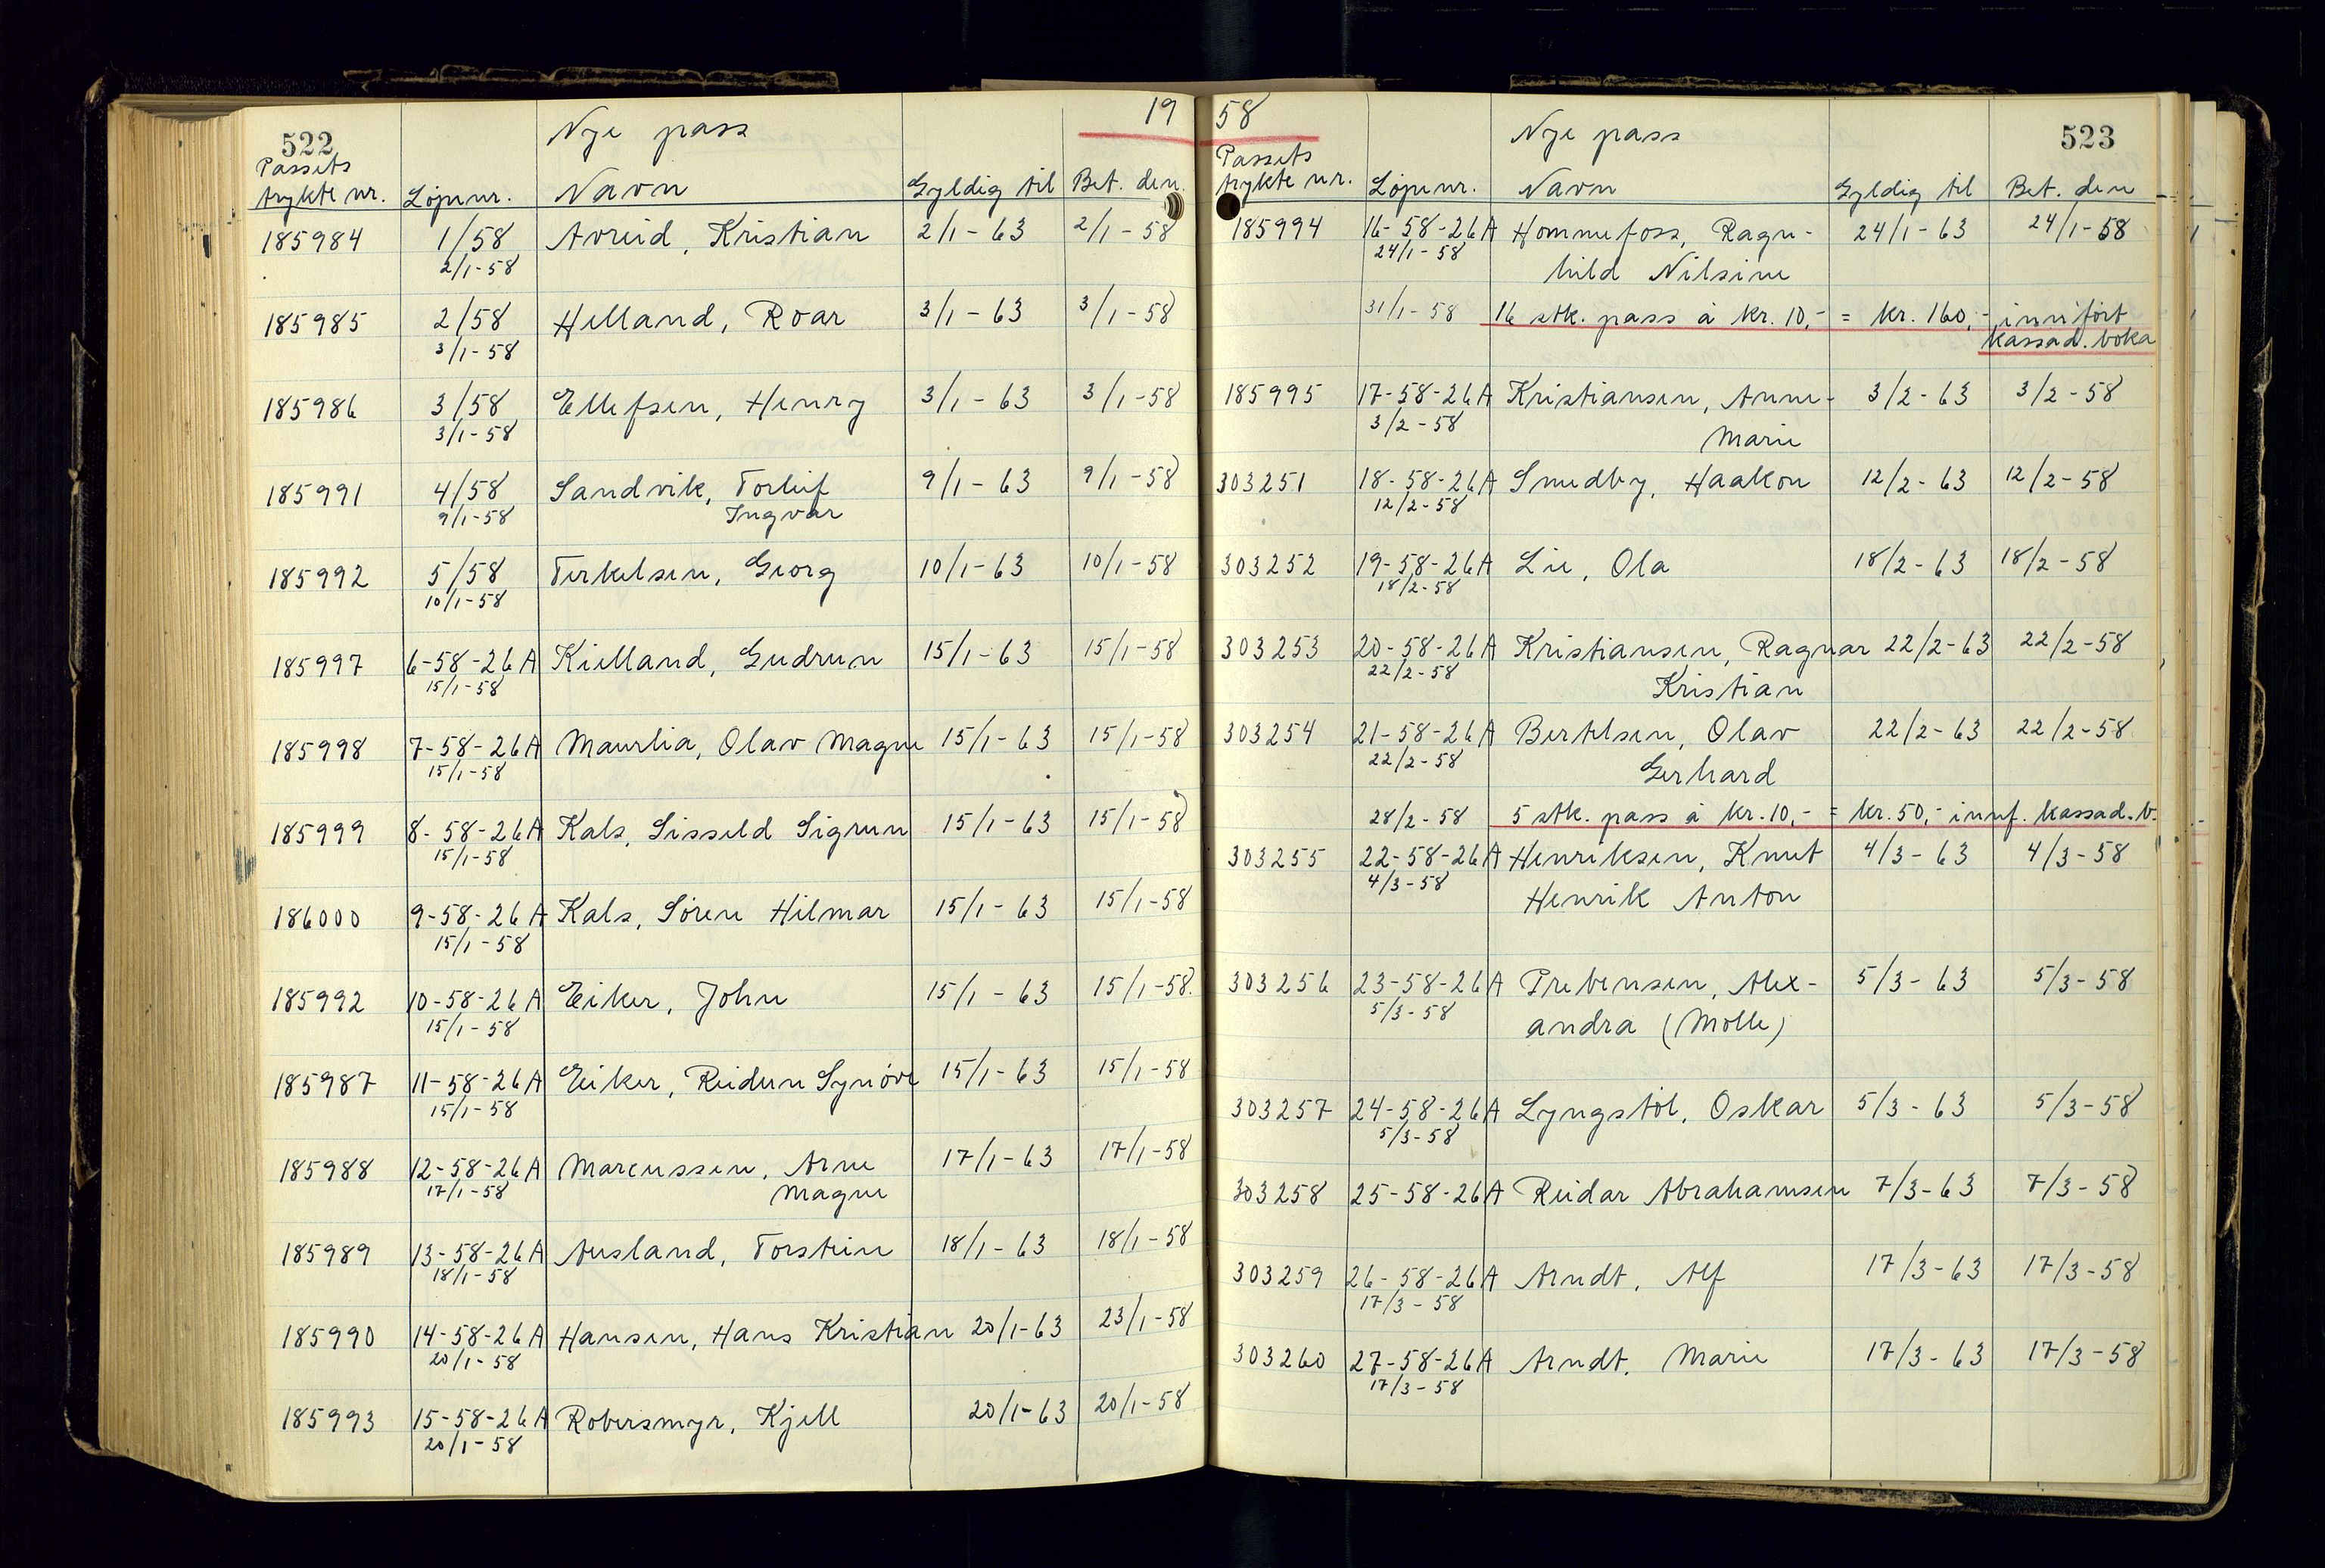 522 Nye pass 19
Passets
trykte nr. Løpenr. Navn Gyldig til Bet. den
185984 1/58 Avreid, Kristian 2/1-63 2/1-58
2/1-58
185985 2/58 Helland, Roar 3/1-63 3/1-58
3/1-58
185986 3/58 Ellefsen, Henry 3/1-63 3/1-58
3/1-58
185991 4/58 Sandvik, Torleif 9/1-63 9/1-58
9/1-58 Ingvar
185992 5/58 Terkelsen, Georg 10/1-63 10/1-58
10/1-58
185997 6-58-26A Kielland, Gudrun 15/1-63 15/1-58
15/1-58
185998 7-58-26A Maurlia, Olav Magne 15/1-63 15/1-58
15/1-58
185999 8-58-26A Kals, Sisseld Sigrun 15/1-63 15/1-58
15/1-58
186000 9-58-26A Kals, Sören Hilmar 15/1-63 15/1-58
15/1-58
185992 10-58-26A Eiker, John 15/1-63 15/1-58
15/1-58
185987 11-58-26A Eiker, Reidun Synöve 15/1-63 15/1-58
15/1-58
185988 12-58-26A Marcussen, Arne 17/1-63 17/1-58
17/1-58 Magne
185989 13-58-26A Ausland, Torstein 18/1-63 18/1-58
18/1-58
185990 14-58-26A Hansen, Hans Kristian 20/1-63 23/1-58
20/1-58
185993 15-58-26A Robersmyr, Kjell 20/1-63 20/1-58
20/1-58
58 Nye pass 523
Passets
trykte nr. Löpenr. Navn Gyldig til Bet. den
185994 16-58-26A Hommefoss, Ragn- 24/1-63 24/1-58
24/1-58 hild Nilsine
31/1-58 16 stk. pass à kr. 10,- = kr. 160,- innfört
kassad. boka
185995 17-58-26A Kristiansen, Anne- 3/2-63 3/2-58
3/2-58 Marie
303251 18-58-26A Smedby, Haakon 12/2-63 12/2-58
12/2-58
303252 19-58-26A Lie, Ola 18/2-63 18/2-58
18/2-58
303253 20-58-26A Kristiansen, Ragnar 22/2-63 22/2-58
22/2-58 Kristian
303254 21-58-26A Bertelsen, Olav 22/2-63 22/2-58
22/2-58 Gerhard
28/2-58 5 stk. pass à kr. 10,- = kr. 50,- innf. kassad. b.
303255 22-58-26A Henriksen, Knut 4/3-63 4/3-58
4/3-58 Henrik Anton
303256 23-58-26A Prebensen, Alex- 5/3-63 5/3-58
5/3-58 andra (Molle)
303257 24-58-26A Lyngstöl, Oskar 5/3-63 5/3-58
5/3-58
303258 25-58-26A Reidar Abrahamsen 7/3-63 7/3-58
303259 26-58-26A Arndt, Alf 17/3-63 17/3-58
17/3-58
303260 27-58-26A Arndt, Marie 17/3-63 17/3-58
17/3-58